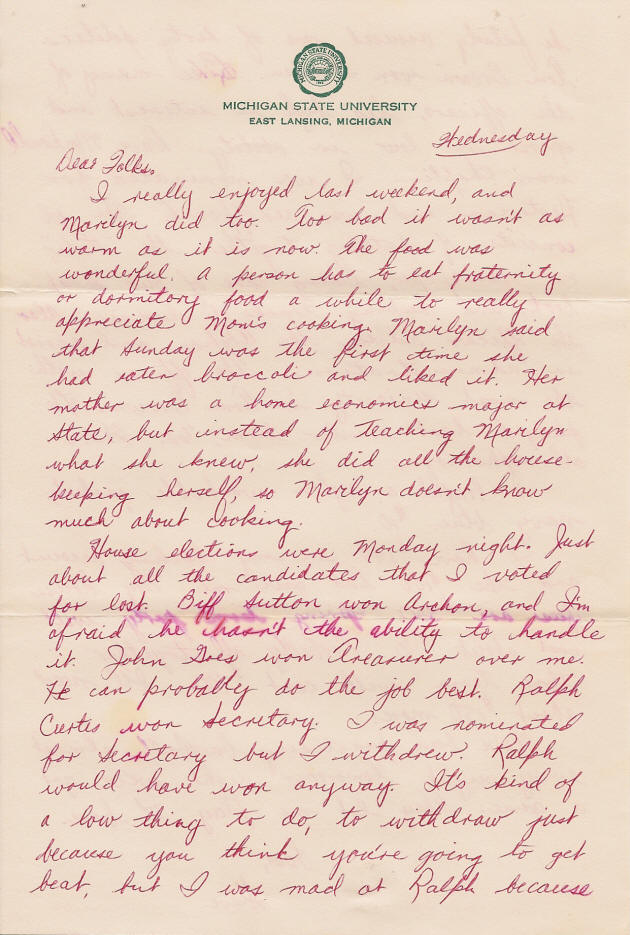 MICHIGAN STATE UNIVERSITY
MICHIGAN STATE UNIVERSITY
EAST LANSING, MICHIGAN
Wednesday
Dear Folks,
I really enjoyed last weekend, and
Marilyn did too. Too bad it wasn't as
warm as it is now. The food was
wonderful. A person has to eat fraternity
or dormitory food a while to really
appreciate Mom's cooking. Marilyn said
that Sunday was the first time she
had eaten broccoli and liked it. Her
mother was a home economics major at
State, but instead of teaching Marilyn
what she knew, she did all the house-
keeping herself, so Marilyn doesn't know
much about cooking.
House elections were Monday night. Just
about all the candidates that I voted
for lost. Biff Sutton won Archon, and I'm
afraid he hasn't the ability to handle
it. John Goes won Treasurer over me.
He can probably do the job best. Ralph
Curtis won Secretary. I was nominated
for Secretary but I withdrew. Ralph
would have won anyway. It's kind of
a low thing to do, to withdraw just
because you think you're going to get
beat, but I was mad at Ralph because